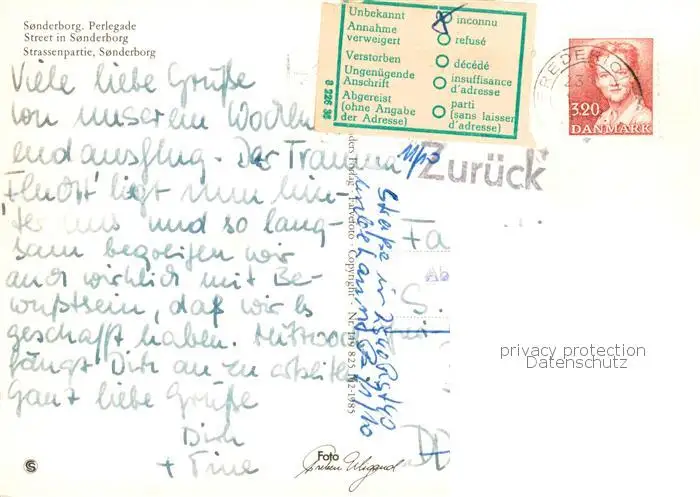 Sønderborg. Perlegade
Street in Sønderborg
Strassenpartie, Sønderborg
Viele liebe Grüße
von unserem Wochen
endausflug. Der Trauma
Flucht liegt nun hin-
ter uns und so lang-
sam begreifen wir
auch wirklich mit Be-
wußtsein, daß wir es
geschafft haben. Mittwoch
fängt Dirk an zu arbeiten
Ganz liebe Grüße
Dirk
+ Tine
Unbekannt inconnu
Annahme
verweigert refusé
Verstorben décédé
Ungenügende
Anschrift insuffisance
d'adresse
Abgereist
(ohne Angabe
der Adresse) parti
(sans laisser
d'adresse)
8 226 36
Zurück
FREDERIC
3.20
DANMARK
Straße in
unbekannt
Farvefoto · Copyright · Nr.
1985
Fa
Ab
S.
DD
Foto
privacy protection
Datenschutz